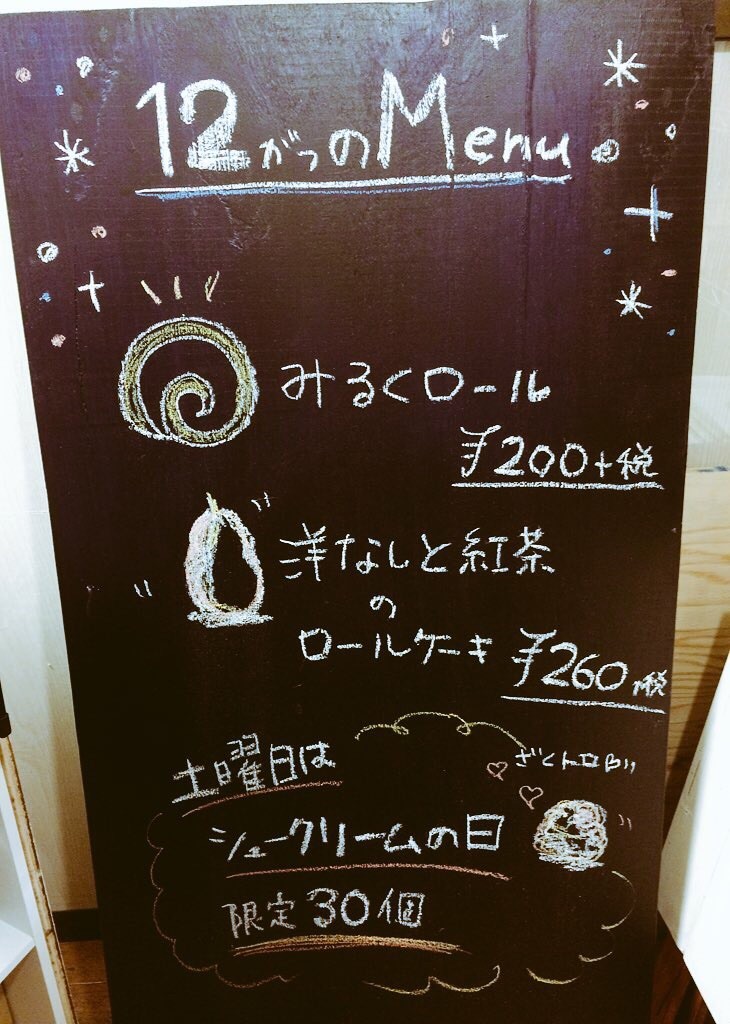 12がつのMenu
みるくロール
¥200+税
洋なしと紅茶
の
ロールケーキ ¥260+税
土曜日は
シュークリームの日
限定30個